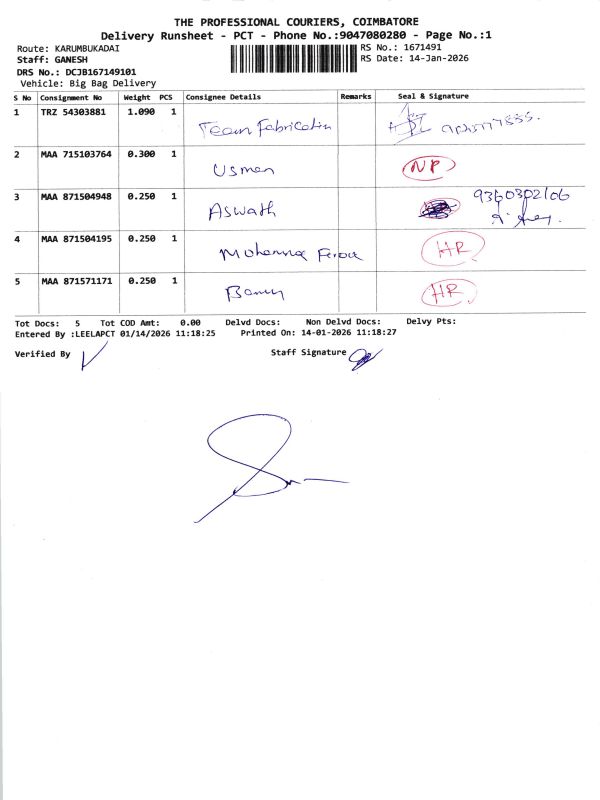 THE PROFESSIONAL COURIERS, COIMBATORE
Delivery Runsheet - PCT - Phone No.:9047080280 - Page No.:1
Route: KARUMBUKADAI RS No.: 1671491
Staff: GANESH RS Date: 14-Jan-2026
DRS No.: DCJB167149101
Vehicle: Big Bag Delivery
S No Consignment No Weight PCS Consignee Details Remarks Seal & Signature
1 TRZ 54303881 1.090 1 Team Fabrication
2 MAA 715103764 0.300 1 Usman NP
3 MAA 871504948 0.250 1 Aswath 9360302106
4 MAA 871504195 0.250 1 Mohamma HR
5 MAA 871571171 0.250 1 HR
Tot Docs: 5 Tot COD Amt: 0.00 Delvd Docs: Non Delvd Docs: Delvy Pts:
Entered By :LEELAPCT 01/14/2026 11:18:25 Printed On: 14-01-2026 11:18:27
Verified By Staff Signature